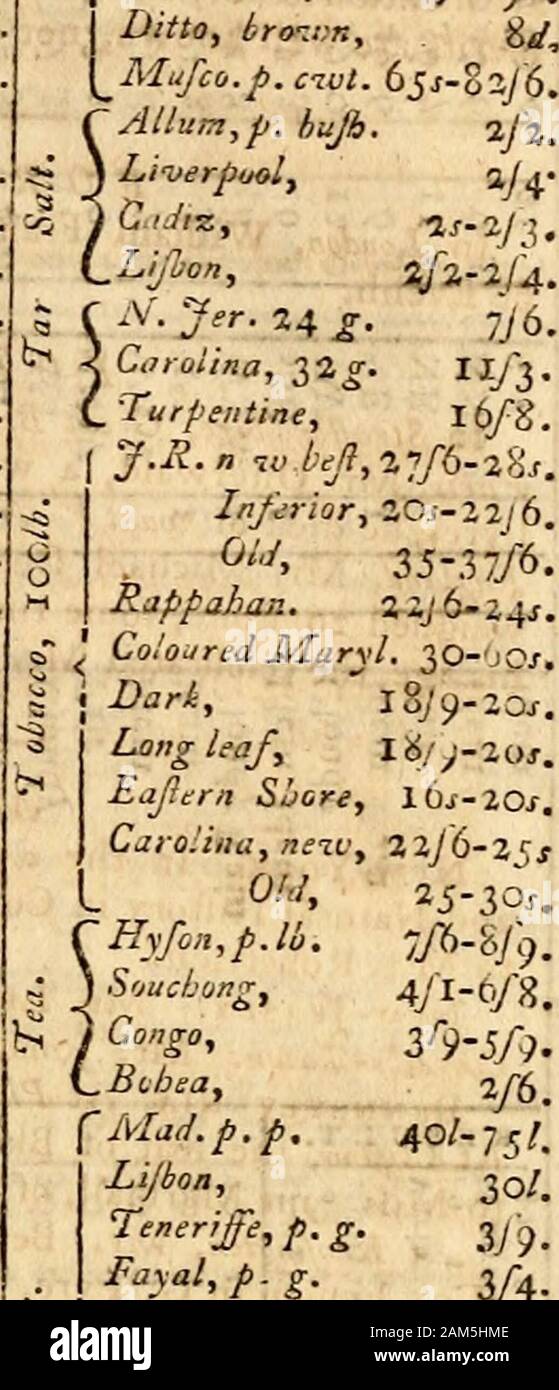 Ditto, brown, 8d.
Muſco. p. cwt. 65s-82ſ6.
Salt.
Allum, p. buſh. 2ſ2.
Liverpool, 2ſ4.
Cadiz, 2s-2ſ3.
Liſbon, 2ſ2-2ſ4.
Tar
N. Jer. 24 g. 7ſ6.
Carolina, 32 g. 11ſ3.
Turpentine, 16ſ8.
Tobacco, 100lb.
J.R. n w beſt, 27ſ6-28s.
Inferior, 20s-22ſ6.
Old, 35-37ſ6.
Rappahan. 22ſ6-24s.
Coloured Maryl. 30-60s.
Dark, 18ſ9-20s.
Long leaf, 18ſ9-20s.
Eaſtern Shore, 16s-20s.
Carolina, new, 22ſ6-25s
Old, 25-30s.
Tea.
Hyſon, p. lb. 7ſ6-8ſ9.
Souchong, 4ſ1-6ſ8.
Congo, 3ſ9-5ſ9.
Bohea, 2ſ6.
Mad. p. p. 40l-75l.
Liſbon, 30l.
Teneriffe, p. g. 3ſ9.
Fayal, p. g. 3ſ4.
alamy
Image ID: 2AM5HME
www.alamy.com